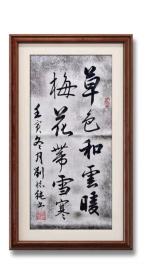 草色和雲暖
梅花帶雪寒
壬寅冬月劉